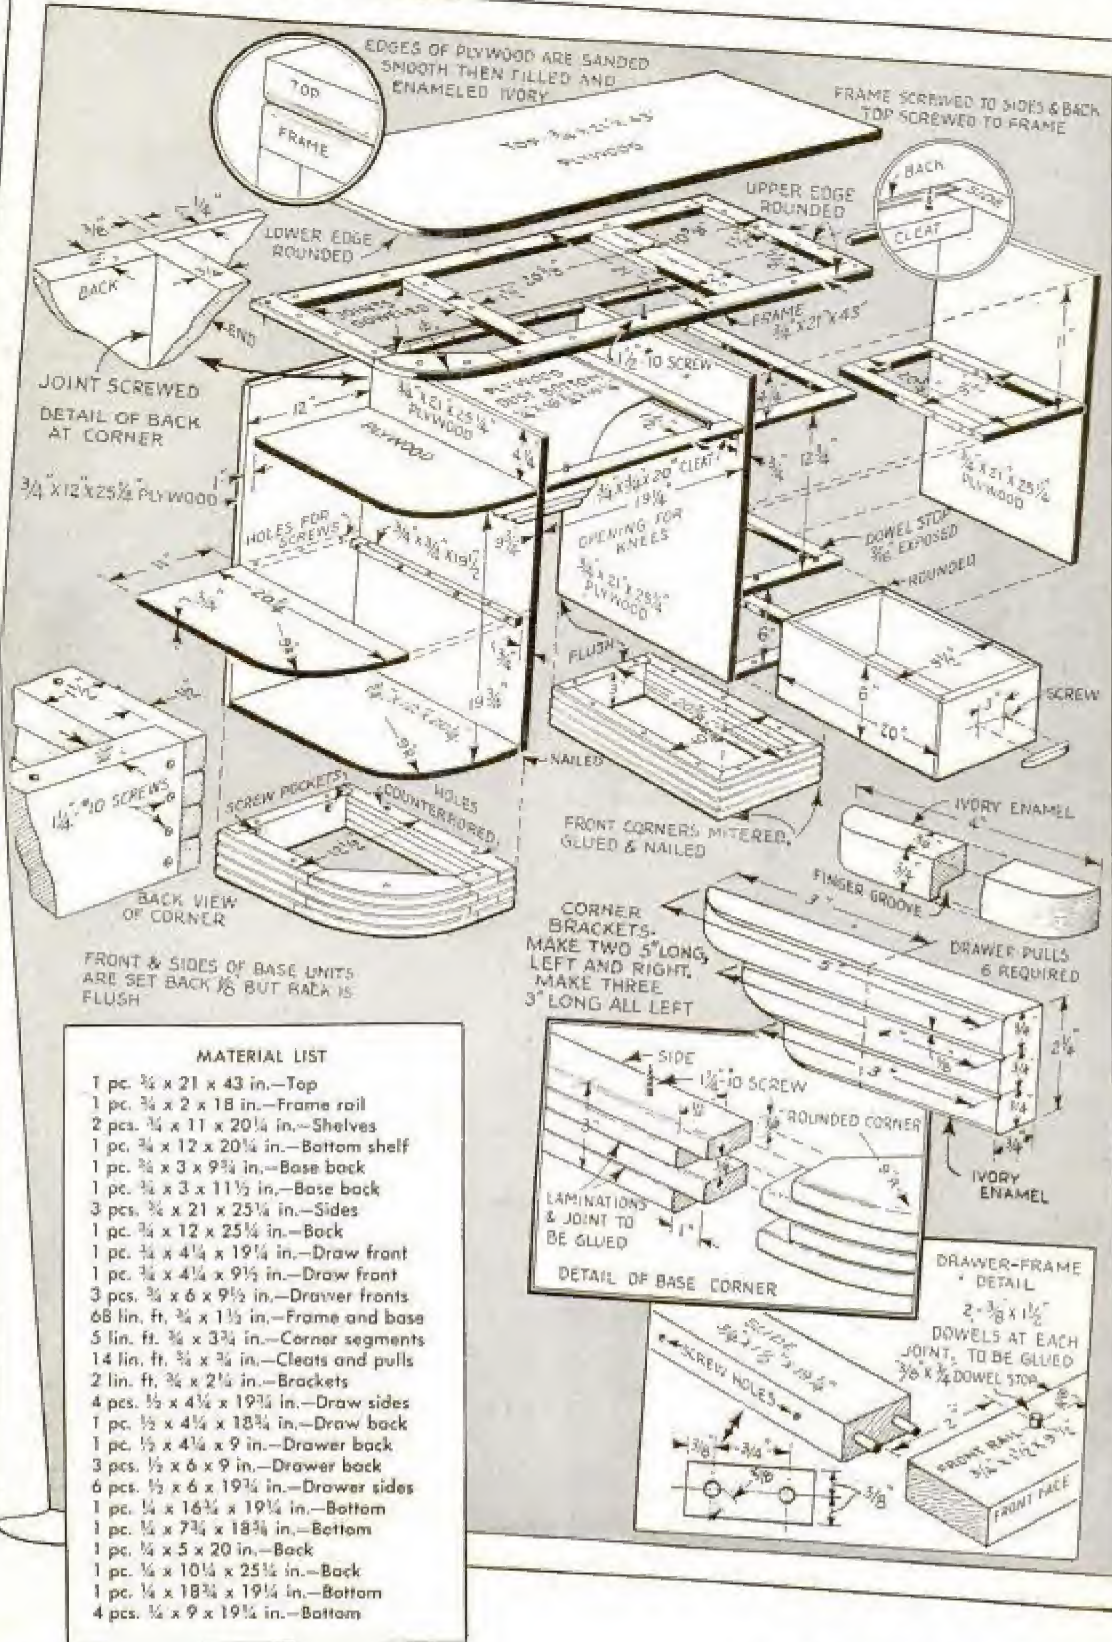 EDGES OF PLYWOOD ARE SANDED
SMOOTH THEN FILLED AND
ENAMELED IVORY
TOP
FRAME
TOP 3/4"X21"X43"
PLYWOOD
FRAME SCREWED TO SIDES & BACK
TOP SCREWED TO FRAME
BACK
CLEAT
UPPER EDGE
ROUNDED
LOWER EDGE
ROUNDED
3/8"
1/4"
BACK
END
JOINT SCREWED
DETAIL OF BACK
AT CORNER
JOINTS
DOWELED
FRAME
3/4"X21"X43"
1 1/2"-10 SCREW
11"
12"
3/4"X21"X25 1/4"
PLYWOOD
PLYWOOD
DUST BOTTOM
4 1/4
PLYWOOD
1"
3/4"X12"X25 1/4" PLYWOOD
3/4"X3/4"X20" CLEAT
19 1/4"
12 3/4"
3/4"
3/4"X21"X25 1/4"
PLYWOOD
HOLES FOR
SCREWS
3/4"X3/4"X19 1/2"
9 3/4"
OPENING FOR
KNEES
3/4"X21"X25 1/4"
PLYWOOD
DOWEL STOP
3/16" EXPOSED
ROUNDED
11"
20 1/4"
9"
FLUSH
6"
9 1/2"
6"
3"
SCREW
20"
19 3/4"
NAILED
1 1/4"-#10 SCREWS
BACK VIEW
OF CORNER
SCREW POCKETS
HOLES
COUNTERBORED
FRONT CORNERS MITERED,
GLUED & NAILED
IVORY ENAMEL
4"
3/4"
FINGER GROOVE
DRAWER PULLS
6 REQUIRED
FRONT & SIDES OF BASE UNITS
ARE SET BACK 1/8" BUT BACK IS
FLUSH
CORNER
BRACKETS.
MAKE TWO 5" LONG,
LEFT AND RIGHT.
MAKE THREE
3" LONG ALL LEFT
3"
5"
1"
1/8"
3"
3/4
3/4
3/4
2 1/4"
3/4"
IVORY
ENAMEL
SIDE
1 1/4"-10 SCREW
3"
ROUNDED CORNER
LAMINATIONS
& JOINT TO
BE GLUED
1"
DETAIL OF BASE CORNER
DRAWER-FRAME
DETAIL
2-3/8"X1 1/2"
DOWELS AT EACH
JOINT, TO BE GLUED
3/8"X3/4" DOWEL STOP
SCREW HOLES
2"
3/8"
3/4"
3/8
3/8"
FRONT RAIL
3/4"X1 1/2"X9 1/2"
FRONT FACE
MATERIAL LIST
1 pc. ¾ x 21 x 43 in.—Top
1 pc. ¾ x 2 x 18 in.—Frame rail
2 pcs. ¾ x 11 x 20¼ in.—Shelves
1 pc. ¾ x 12 x 20¼ in.—Bottom shelf
1 pc. ¾ x 3 x 9¾ in.—Base back
1 pc. ¾ x 3 x 11½ in.—Base back
3 pcs. ¾ x 21 x 25¼ in.—Sides
1 pc. ¾ x 12 x 25¼ in.—Back
1 pc. ¾ x 4¼ x 19¼ in.—Draw front
1 pc. ¾ x 4¼ x 9½ in.—Draw front
3 pcs. ¾ x 6 x 9½ in.—Drawer fronts
68 lin. ft. ¾ x 1½ in.—Frame and base
5 lin. ft. ¾ x 3¾ in.—Corner segments
14 lin. ft. ¾ x ¾ in.—Cleats and pulls
2 lin. ft. ¾ x 2¼ in.—Brackets
4 pcs. ½ x 4¼ x 19¾ in.—Draw sides
1 pc. ½ x 4¼ x 18¾ in.—Draw back
1 pc. ½ x 4¼ x 9 in.—Drawer back
3 pcs. ½ x 6 x 9 in.—Drawer back
6 pcs. ½ x 6 x 19¾ in.—Drawer sides
1 pc. ¼ x 16¾ x 19¼ in.—Bottom
1 pc. ¼ x 7¾ x 18¾ in.—Bottom
1 pc. ¼ x 5 x 20 in.—Back
1 pc. ¼ x 10¼ x 25¼ in.—Back
1 pc. ¼ x 18¾ x 19¼ in.—Bottom
4 pcs. ¼ x 9 x 19¼ in.—Bottom